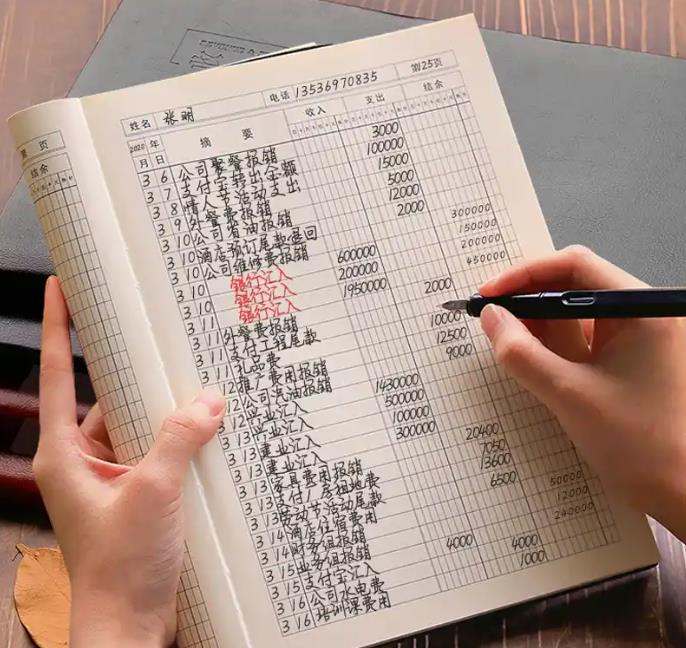 页
结余
姓名 张明 电话 13536970835 第25页
2020年 摘要 收入 支出 结余
月 日
3 6 公司聚餐报销 3000
3 7 支付宝转出金额 100000
3 8 情人节活动支出 15000
3 9 外餐费报销 5000
3 10 公司省油报销 12000
3 10 酒店预订尾款退回 2000
3 10 公司维修费报销 300000
3 10 银行汇入 600000 150000
3 10 银行汇入 200000 200000
3 11 银行汇入 1950000 450000
3 11 外餐费报销 2000
3 11 支付工程尾款 10000
3 11 礼品费 12500
3 12 推广费用报销 9000
3 12 公司汽油报销
3 12 兴业汇入 1430000
3 13 兴业汇入 500000
3 13 建业汇入 100000
3 13 建业汇入 300000
3 13 家具费用报销 20400
3 13 支付厂房租地费 7050
3 13 劳动节活动尾款 13600
3 14 酒店住宿费用 6500
3 14 财务组报销 50000
3 15 业务组报销 12000
3 15 支付宝汇入 4000 240000
3 16 公司水电费 4000
3 16 培训课费用 1000